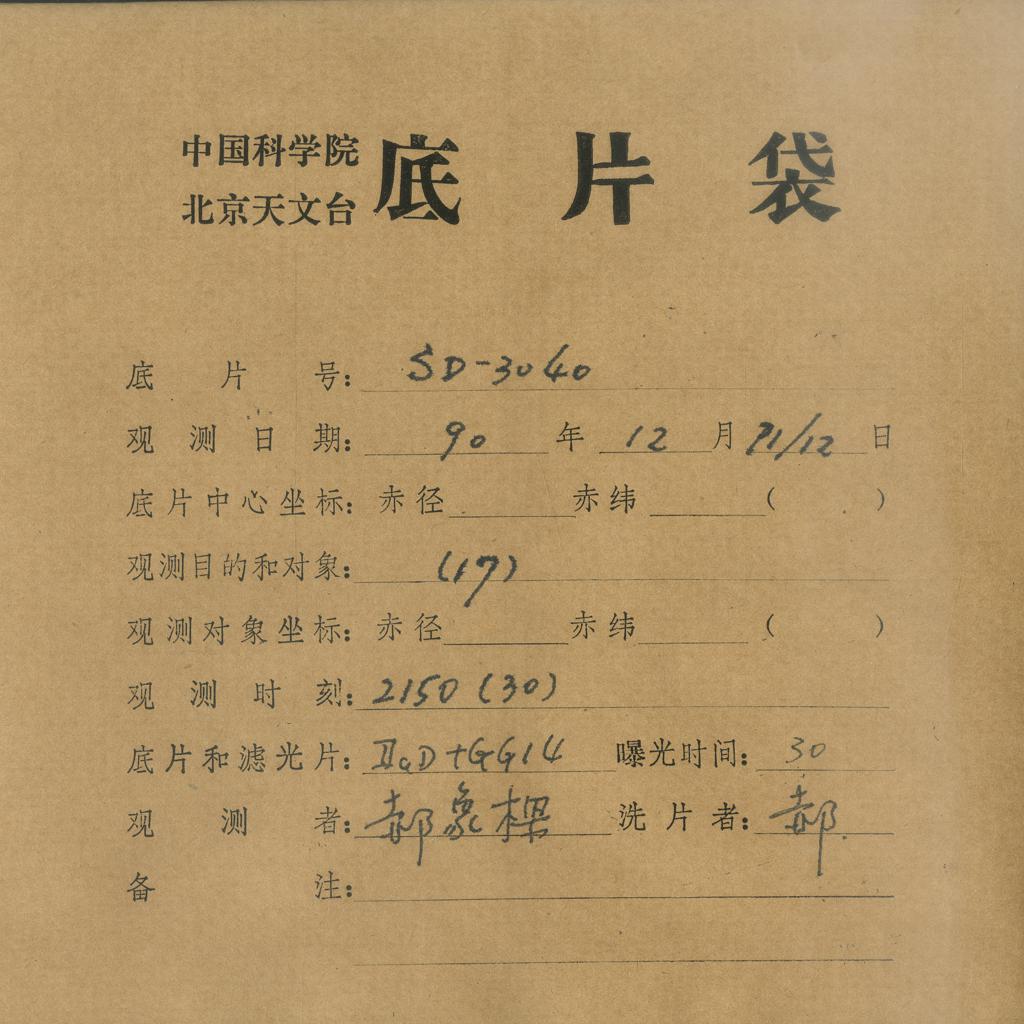 中国科学院
北京天文台
底片袋
底片号：SD-3040
观测日期：90年12月11/12日
底片中心坐标：赤径 赤纬 （ ）
观测目的和对象：(17)
观测对象坐标：赤径 赤纬 （ ）
观测时刻：2150(30)
底片和滤光片：IIaD+GG14 曝光时间：30
观测者：郝象樑 洗片者：郝
备注：